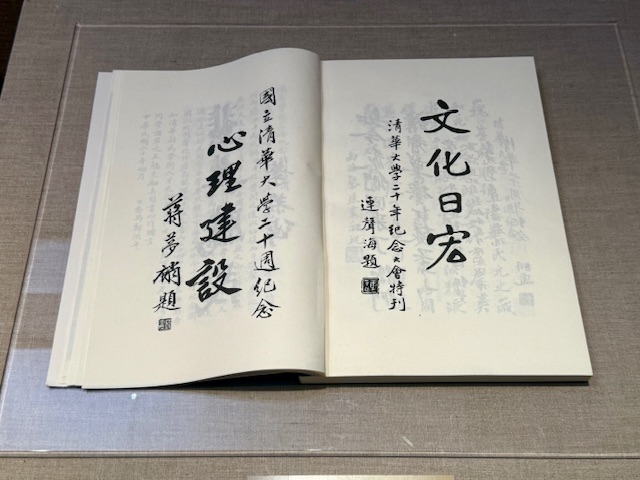 文化日宏
清華大學二十年紀念大會特刊
連聲海題
國立清華大學二十週紀念
心理建設
蔣夢麟題